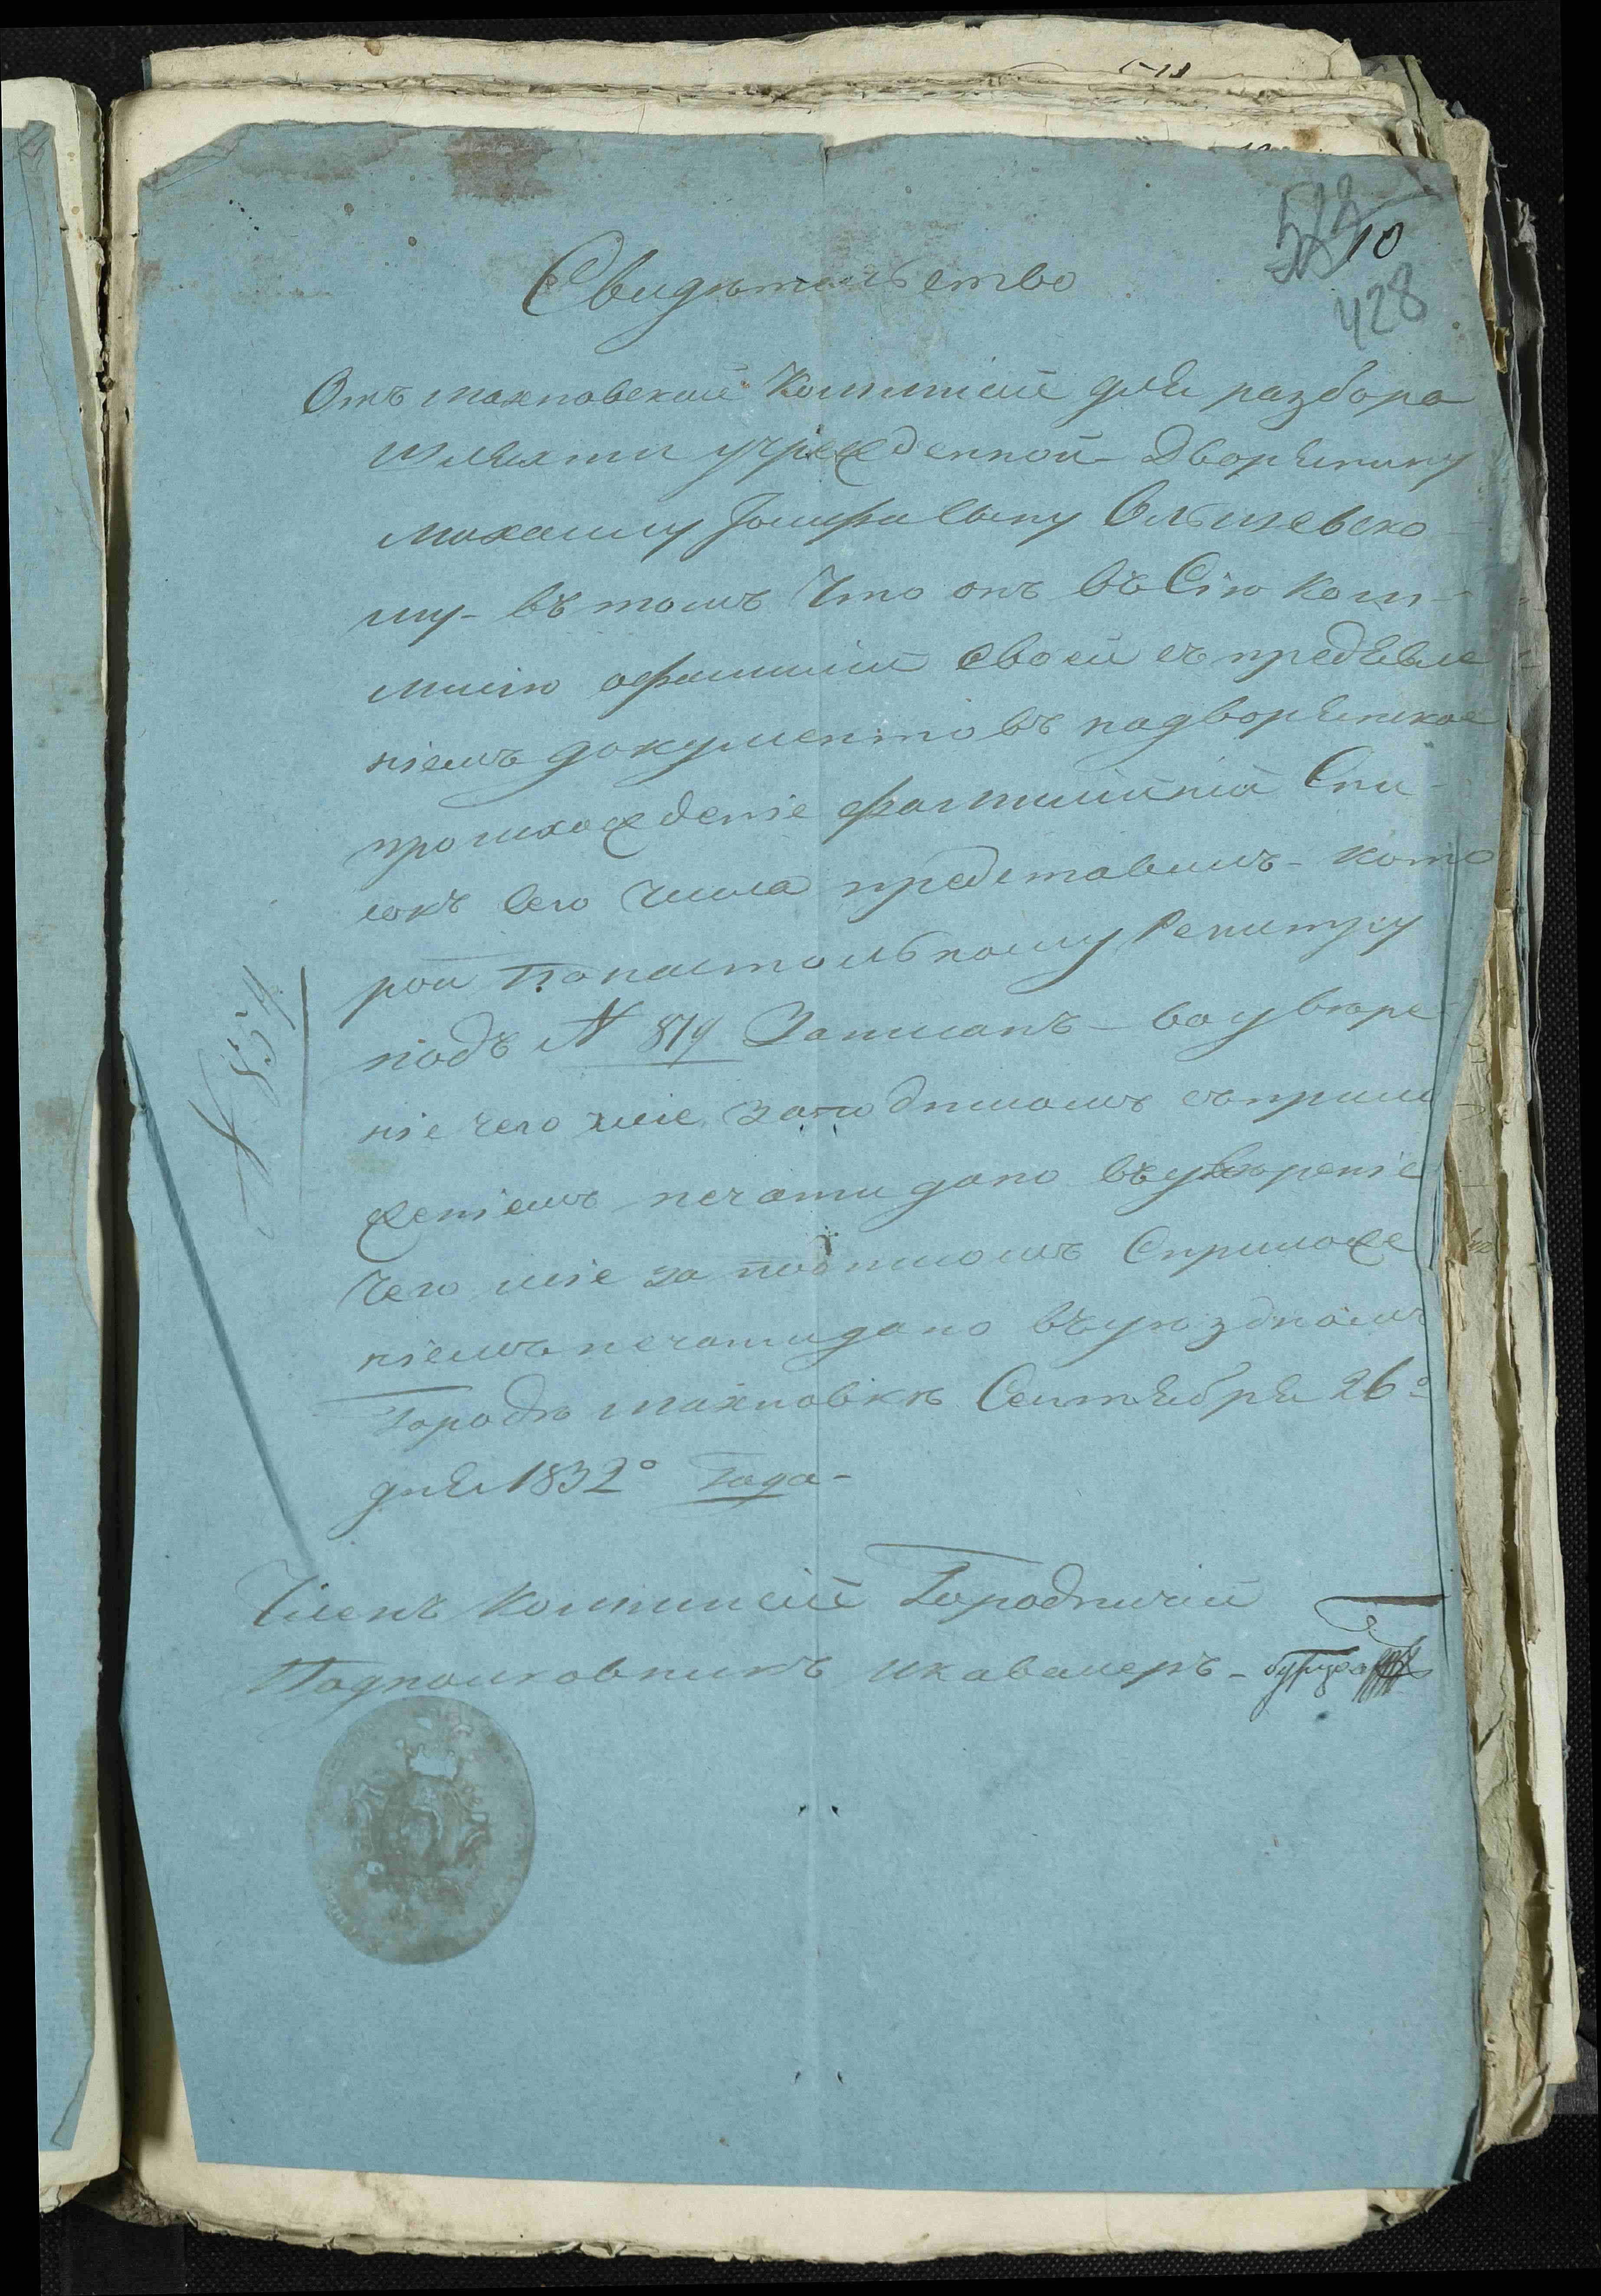 10
428
Свидѣтельство
Отъ махновской Коммисіи для разбора
шляхти учрежденной Дворянину
Михаилу Іосифа Сыну Ольшевско-
му- въ томъ Что онъ въ Сію Ком-
мисію о фамиліи Своей съ предъявле
ніемъ документовъ на дворянское
происхожденіе фамилійній Спи-
сокъ Сего Числа представилъ- кото
рой По настольному Регистру
подъ № 819 Записанъ- во увѣре
ніе чего сіе за подписомъ съ прило
женіемъ печати дано въ увѣреніе
Чего сіе за подписомъ С приложе
ніемъ печати дано въ уѣздномъ
Городѣ махновкѣ Сентября 26º
дня 1832º Года-
№ 854
Членъ Коммисіи Городничій
Подполковникъ и кавалеръ-